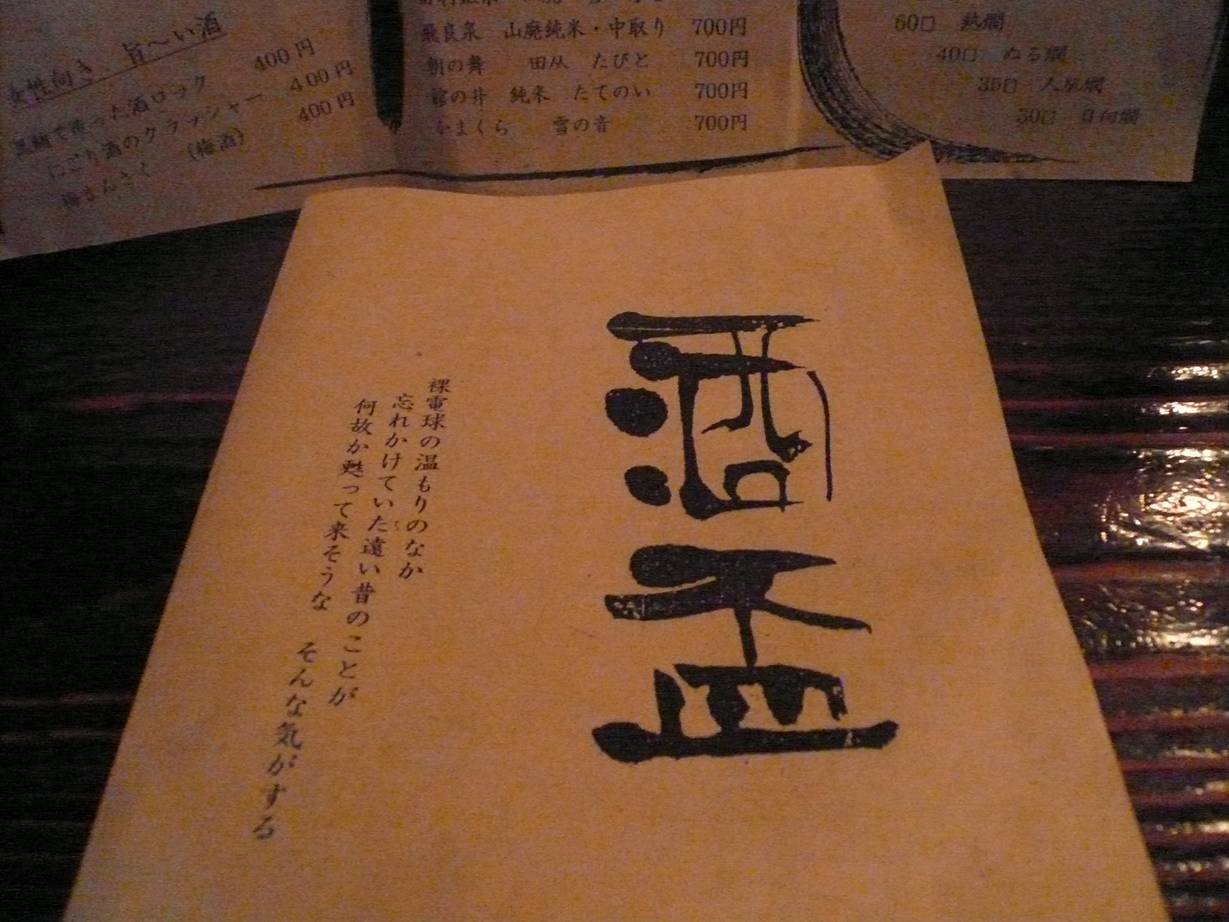 女性向き 旨～い酒
で造った酒ロック 400円
にごり酒のクラッシャー 400円
梅まんさく (梅酒) 400円
飛良泉 山廃純米・中取り 700円
朝の舞 田从 たびと 700円
舘の井 純米 たてのい 700円
かまくら 雪の音 700円
60口 熱燗
40口 ぬる燗
35口 人肌燗
30口 日向燗
酒盃
裸電球の温もりのなか
忘れかけていた遠い昔のことが
何故か甦って来そうな そんな気がする